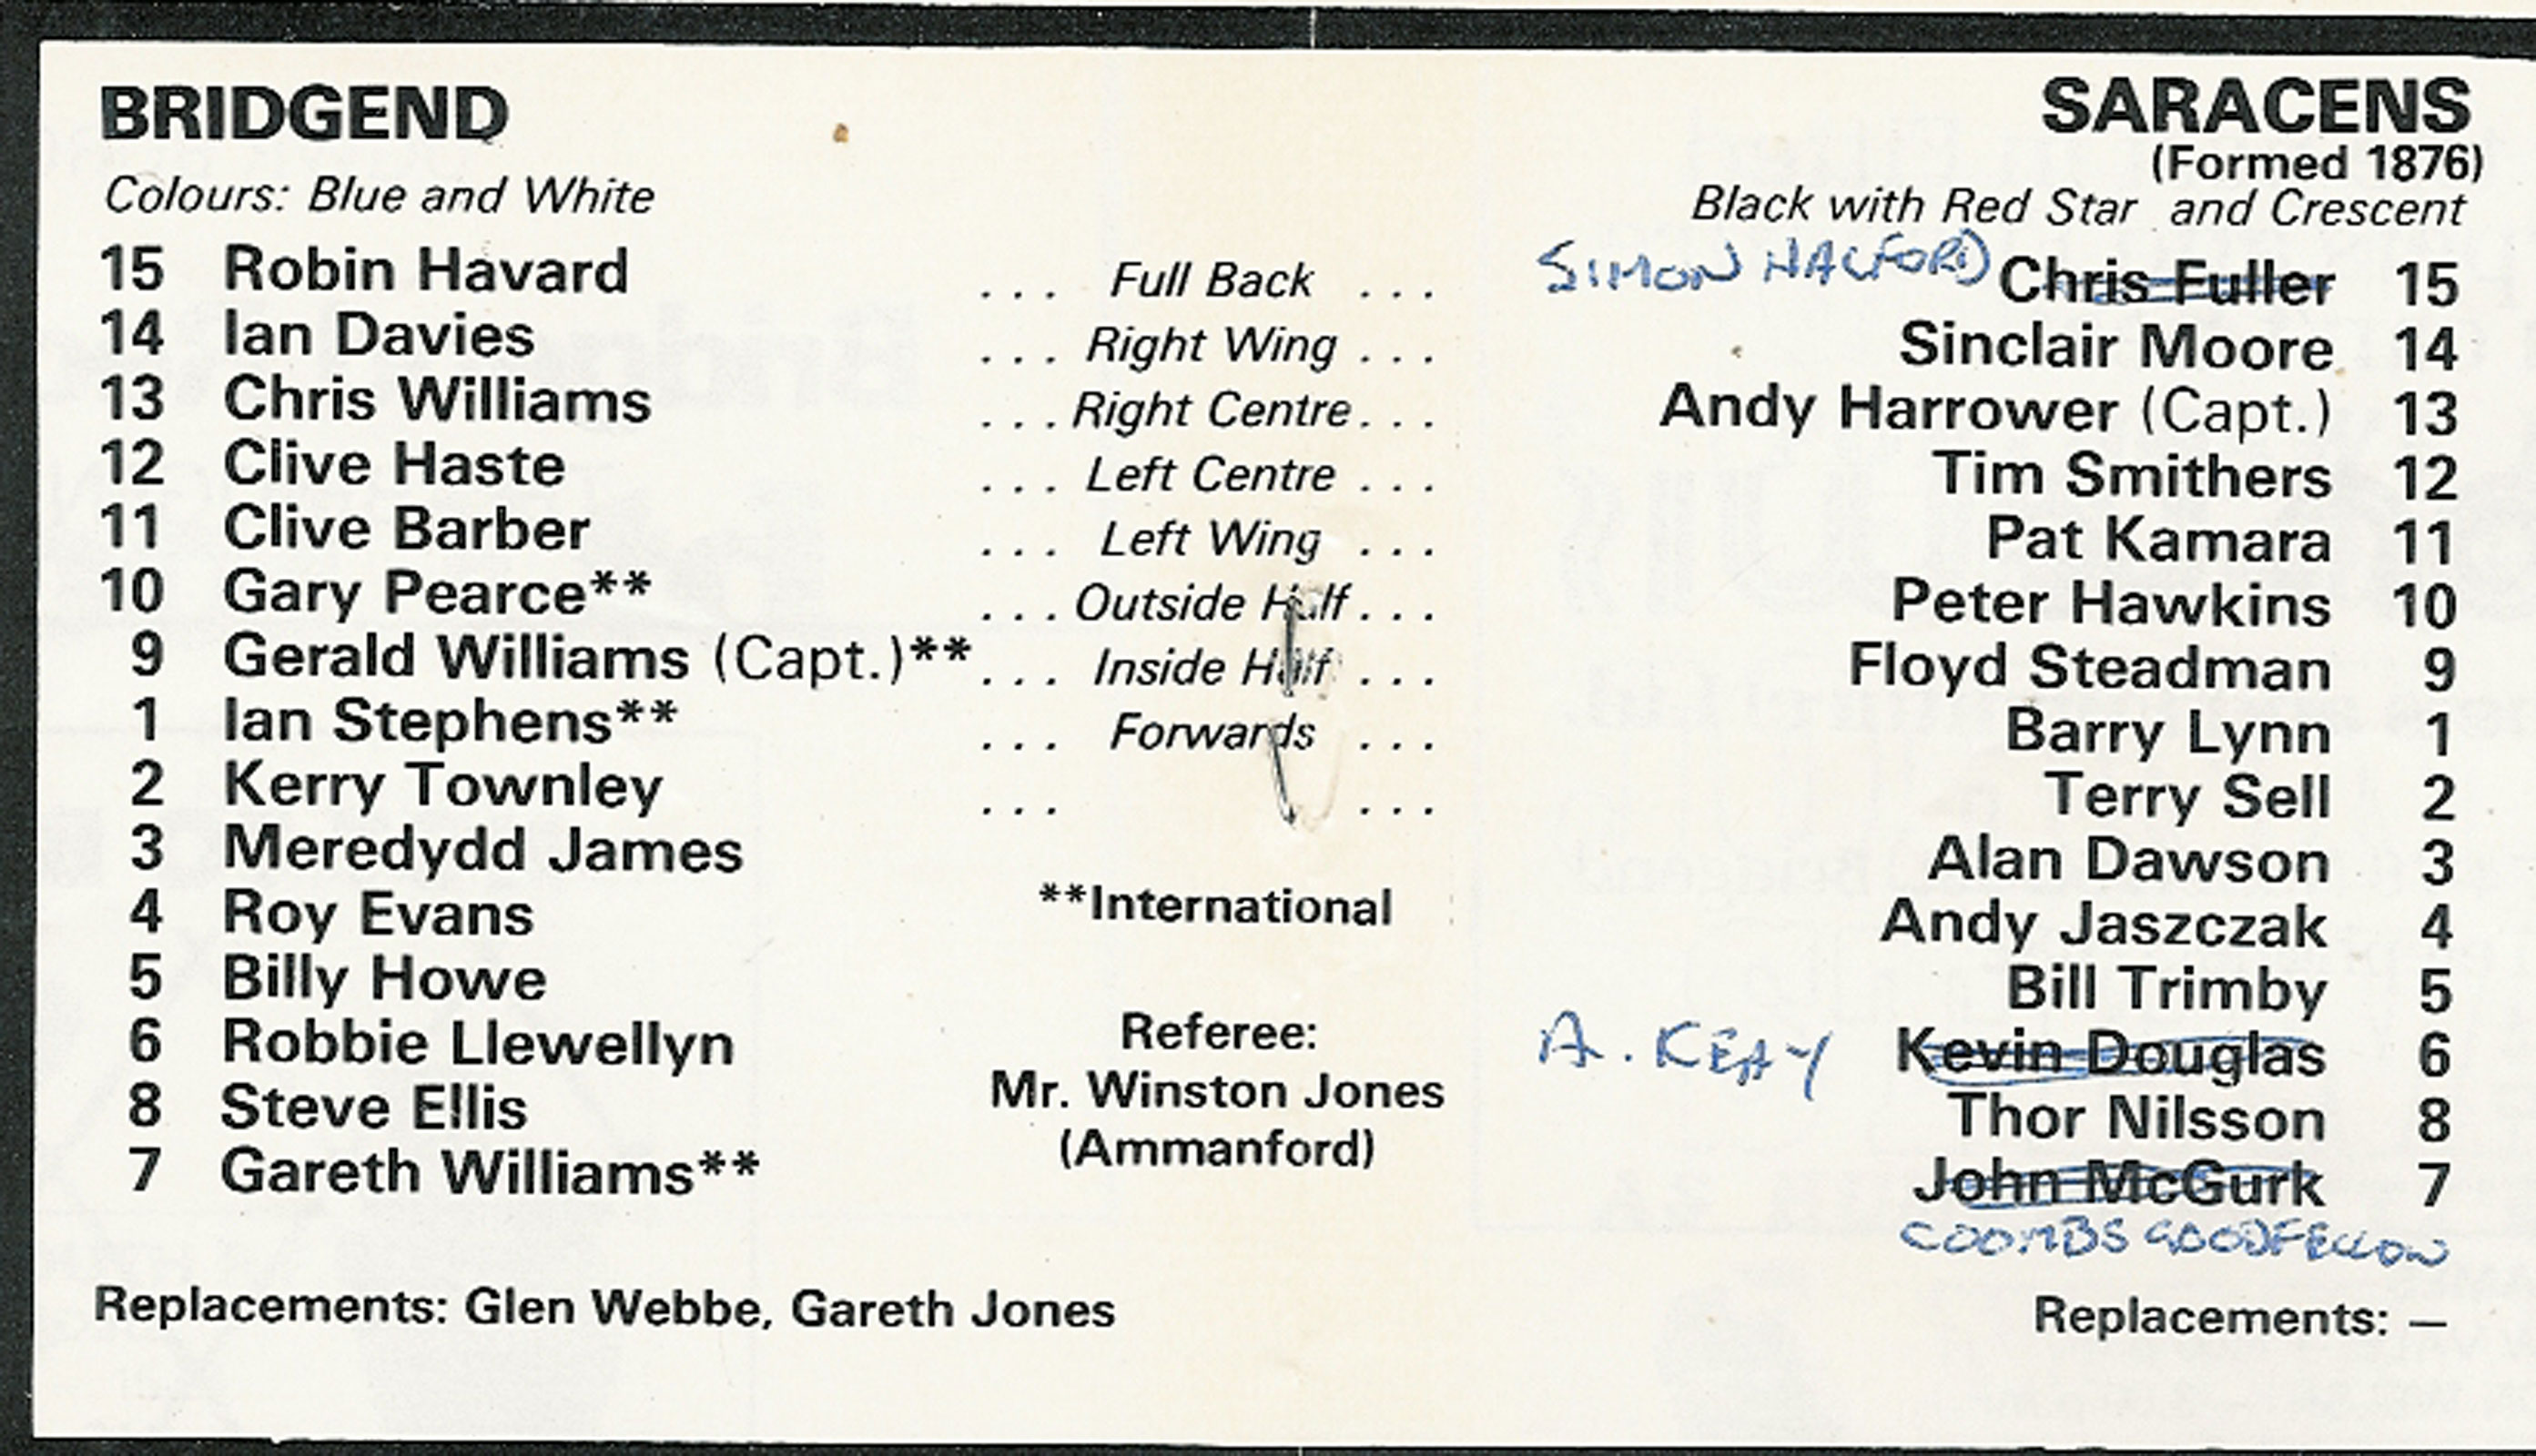 BRIDGEND
Colours: Blue and White
SARACENS
(Formed 1876)
Black with Red Star and Crescent
15 Robin Havard ... Full Back ... SIMON HALFORD Chris Fuller 15
14 Ian Davies ... Right Wing ... Sinclair Moore 14
13 Chris Williams ... Right Centre ... Andy Harrower (Capt.) 13
12 Clive Haste ... Left Centre ... Tim Smithers 12
11 Clive Barber ... Left Wing ... Pat Kamara 11
10 Gary Pearce** ... Outside Half ... Peter Hawkins 10
9 Gerald Williams (Capt.)** ... Inside Half ... Floyd Steadman 9
1 Ian Stephens** ... Forwards ... Barry Lynn 1
2 Kerry Townley ... ... Terry Sell 2
3 Meredydd James Alan Dawson 3
4 Roy Evans **International Andy Jaszczak 4
5 Billy Howe Bill Trimby 5
6 Robbie Llewellyn Referee: A. KEAY Kevin Douglas 6
8 Steve Ellis Mr. Winston Jones Thor Nilsson 8
7 Gareth Williams** (Ammanford) John McGurk 7
COOMBS GOODFELLOW
Replacements: Glen Webbe, Gareth Jones
Replacements: —